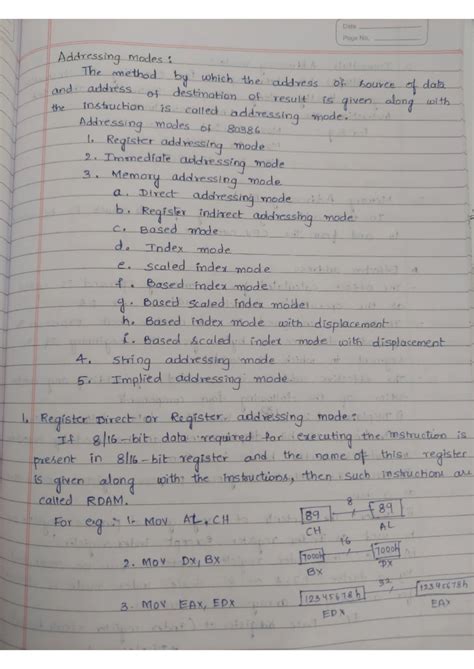 Date
Page No.
Addressing modes :
The method by which the address of source of data
and address of destination of result is given along with
the instruction is called addressing mode.
Addressing modes of 80386
1. Register addressing mode
2. Immediate addressing mode
3. Memory addressing mode
a. Direct addressing mode
b. Register indirect addressing mode
c. Based mode
d. Index mode
e. Scaled index mode
f. Based index mode
g. Based scaled index mode
h. Based index mode with displacement
f. Based scaled index mode with displacement
4. String addressing mode
5. Implied addressing mode
1. Register Direct or Register addressing mode :
If 8/16-bit data required for executing the instruction is
present in 8/16-bit register and the name of this register
is given along with the instructions, then such instructions are
called RDAM.
For eg :- 1. MOV AL, CH
89 8 89
CH AL
2. MOV DX, BX
7000h 16 7000h
BX DX
3. MOV EAX, EDX
12345678h 32 12345678h
EDX EAX